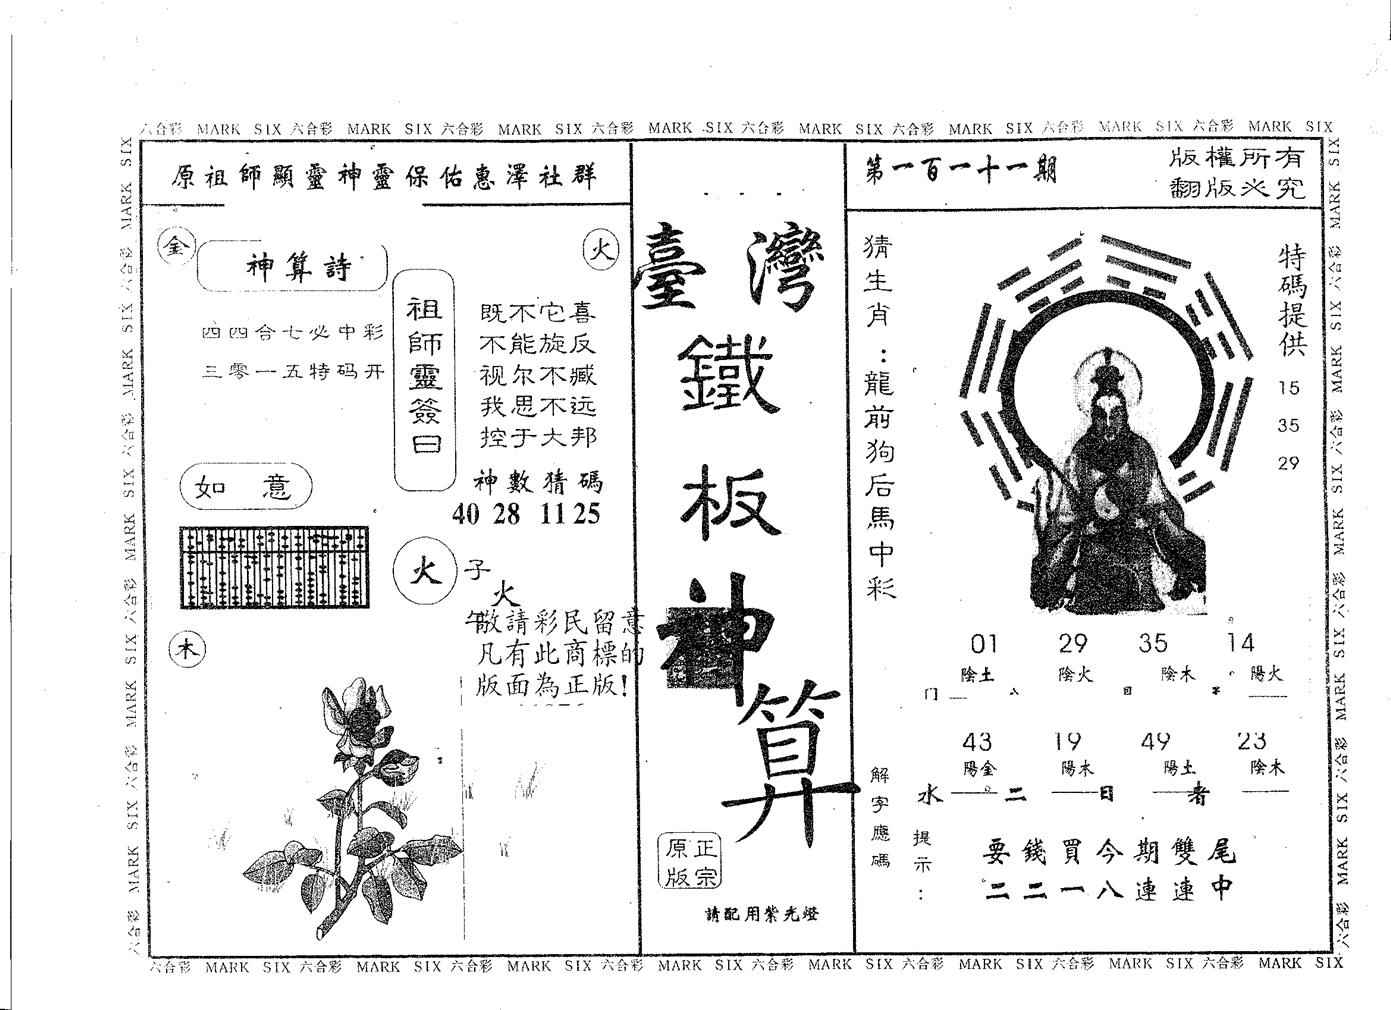 六合彩 MARK SIX 六合彩 MARK SIX 六合彩 MARK SIX 六合彩 MARK SIX 六合彩 MARK SIX 六合彩 MARK SIX 六合彩 MARK SIX 六合彩 MARK SIX
原祖師顯靈神靈保佑惠澤社群
金
神算詩
火
四四合七必中彩
三零一五特码开
祖師靈簽曰
既不它喜
不能旋反
视尔不臧
我思不远
控于大邦
神數猜碼
40 28 11 25
如 意
火
子
火
午
敬請彩民留意
凡有此商標的
版面為正版!
木
臺灣
鐵
板
神
算
正宗
原版
請配用紫光燈
第一百一十一期
版權所有
翻版必究
猜生肖：龍前狗后馬中彩
特碼提供
15
35
29
01 29 35 14
陰土 陰火 陰木 陽火
门 八
43 19 49 23
陽金 陽木 陽土 陰木
水 二 日 者
解字應碼
提示：
要錢買今期雙尾
二二一八連連中
六合彩 MARK SIX 六合彩 MARK SIX 六合彩 MARK SIX 六合彩 MARK SIX 六合彩 MARK SIX 六合彩 MARK SIX 六合彩 MARK SIX 六合彩 MARK SIX